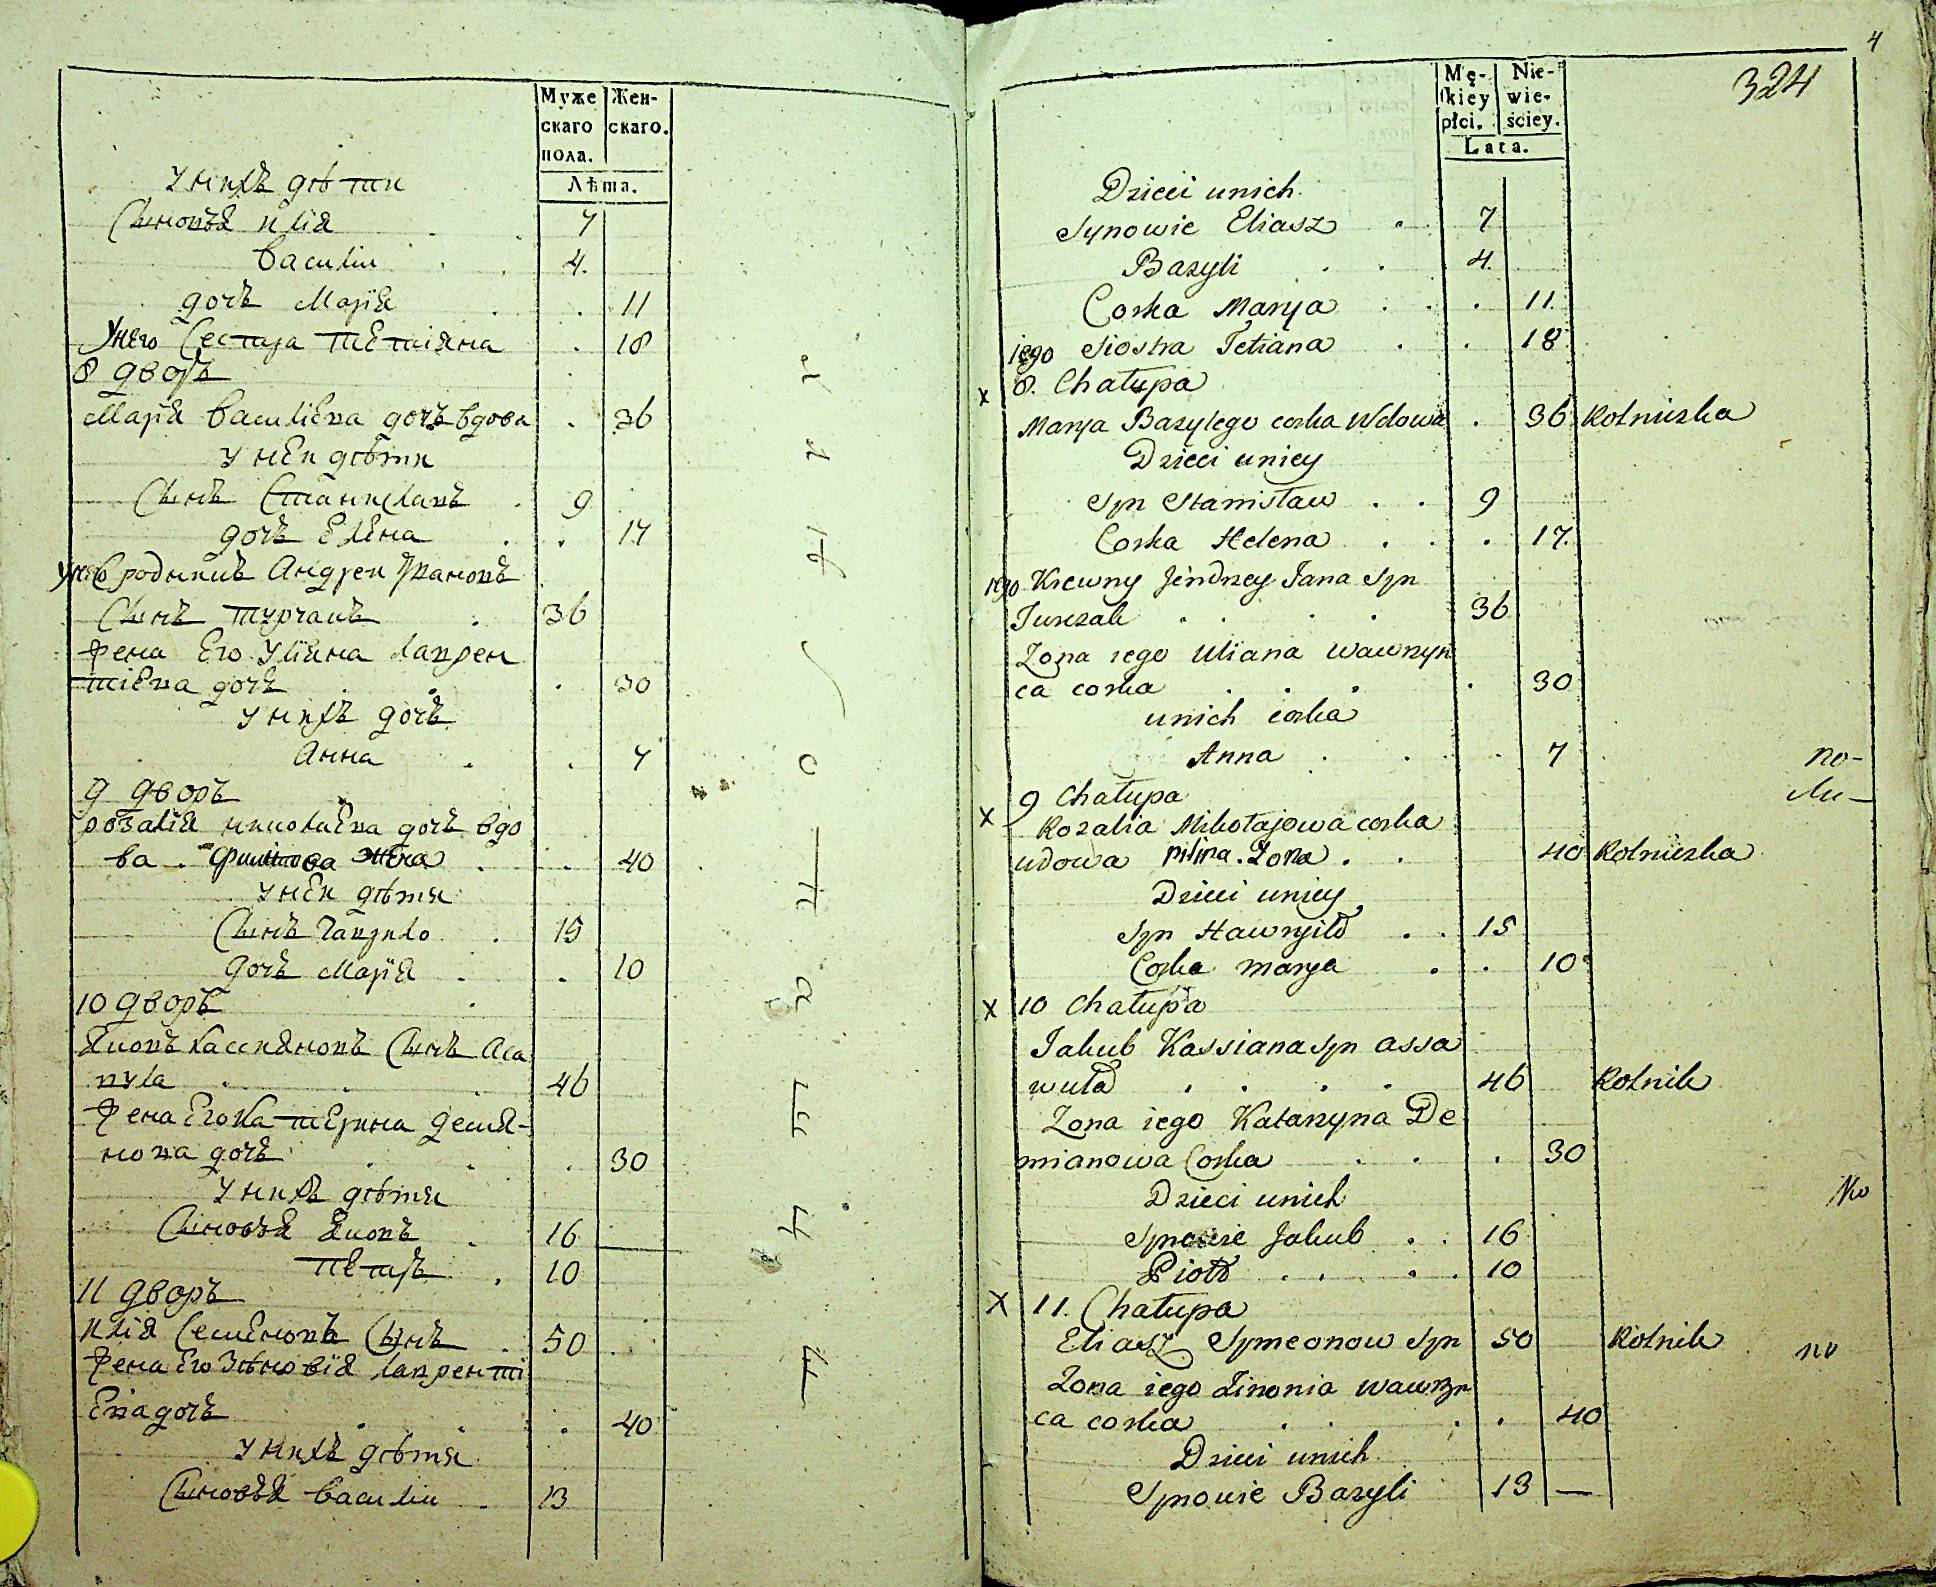 Муже
скаго
пола.
Жен-
скаго.
Лѣта.
У нихъ дѣти
Сыновья илія 7
василий 4.
дочъ Марія 11
У него Сестра татіяна 18
8 дворъ
Марія василіева дочъ вдова 36
У неи дѣти
Сынъ Станиславъ 9
дочъ Елена 17
Сродникъ Андреи Ивановъ
Сынъ турчакъ 36
Жена Его Уліяна лаврен
тіева дочъ 30
У нихъ дочъ
Анна 7
9 дворъ
розалія николаева дочъ вдо
ва жена 40
У неи дѣти
Сынъ Гаврило 15
дочъ Марія 10
10 дворъ
Яковъ кассіяновъ Сынъ Аса
вула 46
Жена Его Катерина демья-
нова дочъ 30
У нихъ дѣти
Сыновья Яковъ 16
Петръ 10
11 дворъ
илія Семеновъ Сынъ 50
Жена Его Зѣновія лавренті
Ева дочъ 40
У нихъ дѣти
Сыновья василии 13
4
324
Mę-
skiey
płci.
Nie-
wie-
ściey.
Lata.
Dzieci unich
Synowie Eliasz 7
Bazyli 4.
Corka Marya 11
iego Siostra Tetiana 18
x 8. Chałupa
Marya Bazylego corka Wdowa 36 Rolniczka
Dzieci uniey
Syn Stanisław 9
Corka Helena 17.
iego Krewny Jendrzey Jana Syn
Turczak 36
Zona iego Uliana Wawrzyn
ca corka 30
unich corka
Anna 7
x 9 Chałupa
Rozalia Mikołajowa corka
udowa Zona. 40 Rolniczka
Dzieci uniey
Syn Hawryło 15
Corka marya 10
x 10 Chałupa
Jakub Kassiana Syn assa
wuła 46 Rolnik
Zona iego Katarzyna De
mianowa Corka 30
Dzieci unich
Synowie Jakub 16
Piotr 10
x 11. Chałupa
Eliasz Symeonow Syn 50 Rolnik
Zona iego Zinonia wawrzyn
ca corka 40
Dzieci unich
Synowie Bazyli 13 —